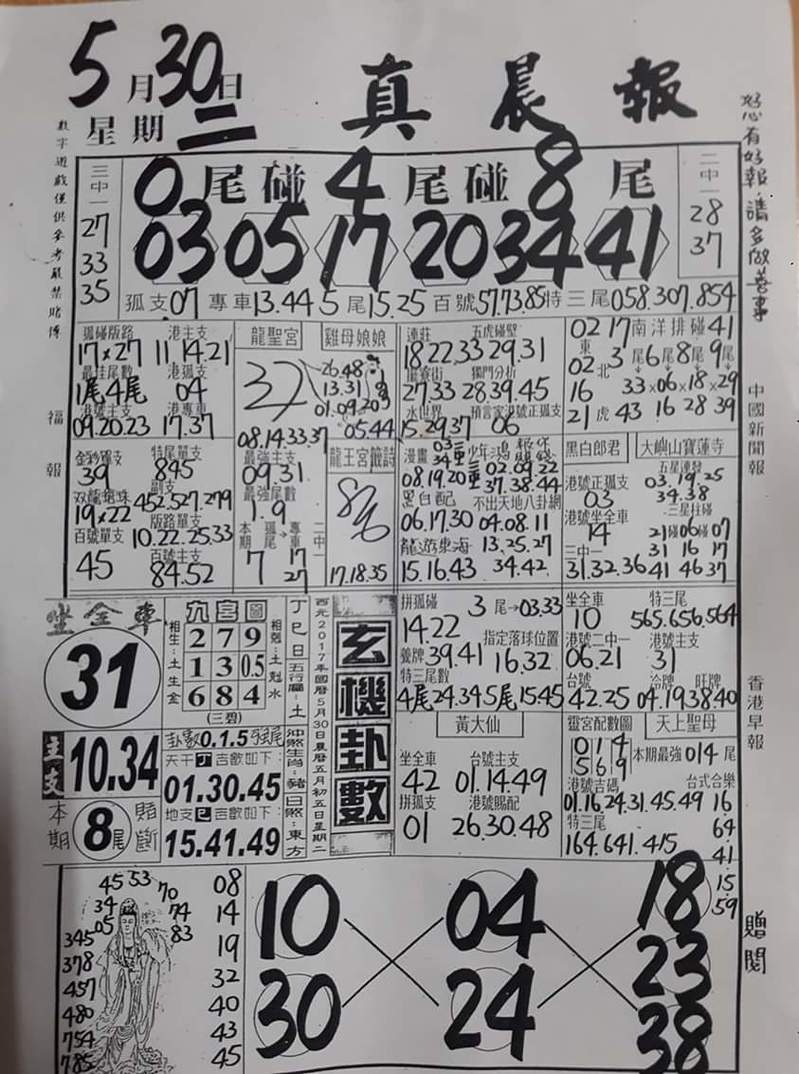 5月30日
星期二
真晨報
數字遊戲僅供參考嚴禁賭博
福報
好心有好報 請多做善事
中國新聞報
香港早報
贈閱
三中一
27
33
35
0尾碰4尾碰8尾
03 05 17 20 34 41
二中一
28
37
孤支07 專車13.44 5尾15.25 百號57.73.85 特三尾058.307.854
孤碰版路 港主支
17×27 11.14.21
最佳尾數 港孤支
1尾4尾 04
港號主支 港專車
09.20.23 17.37
龍聖宮
37
08.14.33.37
雞母娘娘
26.48
13.31
01.09.203
05.44
連莊 五虎碰壁
18.22.33 29.31
龍寮街 獨門分析
27.33 28.39.45
水世界 預言家港號正孤支
15.29.37 06
02 17 南洋排碰 41
東 02 北 3尾 6尾 8尾 9尾
16 33×06×18×29
21 虎 43 16 28 39
金彩孤支 特尾單支
39 845
双龍搶珠 副支
19×22 452.527.279
百號單支 版路單支
10.22.25.33
45 百號主支
84.52
最強主支
09.31
最強尾數
1.9
本期 孤尾→專車 二中一
7 17
27
龍王宮籤詩
17.18.35
漫畫
08.19.20
02.09.22
37.38.44
黑白配 不出天地八卦網
06.17.30 04.08.11
龍遊東海 13.25.27
15.16.43 34.42
黑白郎君
港號正孤支
03
港號坐全車
14
三中一
31.32.36
大嶼山寶蓮寺
五星連發
03.19.25
34.38
三星柱碰
21碰06碰07
31 16 17
41 46 37
坐全車
31
九宮圖
相生:土生金
2 7 9
1 3 0.5
6 8 4
(三碧)
相剋:土剋水
丁巳日 五行屬:土
沖煞生肖:豬 日煞:東方
西元2017年國曆5月30日農曆五月初五日星期二
玄機卦數
主支
10.34
本期
8尾
賭斷
卦數0.1.5發尾
天干丁吉數如下:
01.30.45
地支巳吉數如下:
15.41.49
拼孤碰 3尾→03.33
14.22 指定落球位置
養牌39.41 16.32
特三尾數
4尾24.34 5尾15.45
坐全車 特三尾
10 565.656.564
港號二中一 港號主支
06.21 31
台號 冷牌 旺牌
42.25 04.19 38.40
黃大仙
坐全車 台號主支
42 01.14.49
拼孤支 港號賜配
01 26.30.48
靈宮配數圖
0 1 4
5 6 9
天上聖母
本期最強014尾
港號吉碼 台式合樂
01.16.24.31.45.49 16
特三尾 64
164.641.415 41
15
59
45 53 70
34 74
05 83
345
378
457
480
754
785
08
14
19
32
40
43
45
10 04 18
23
30 24 38